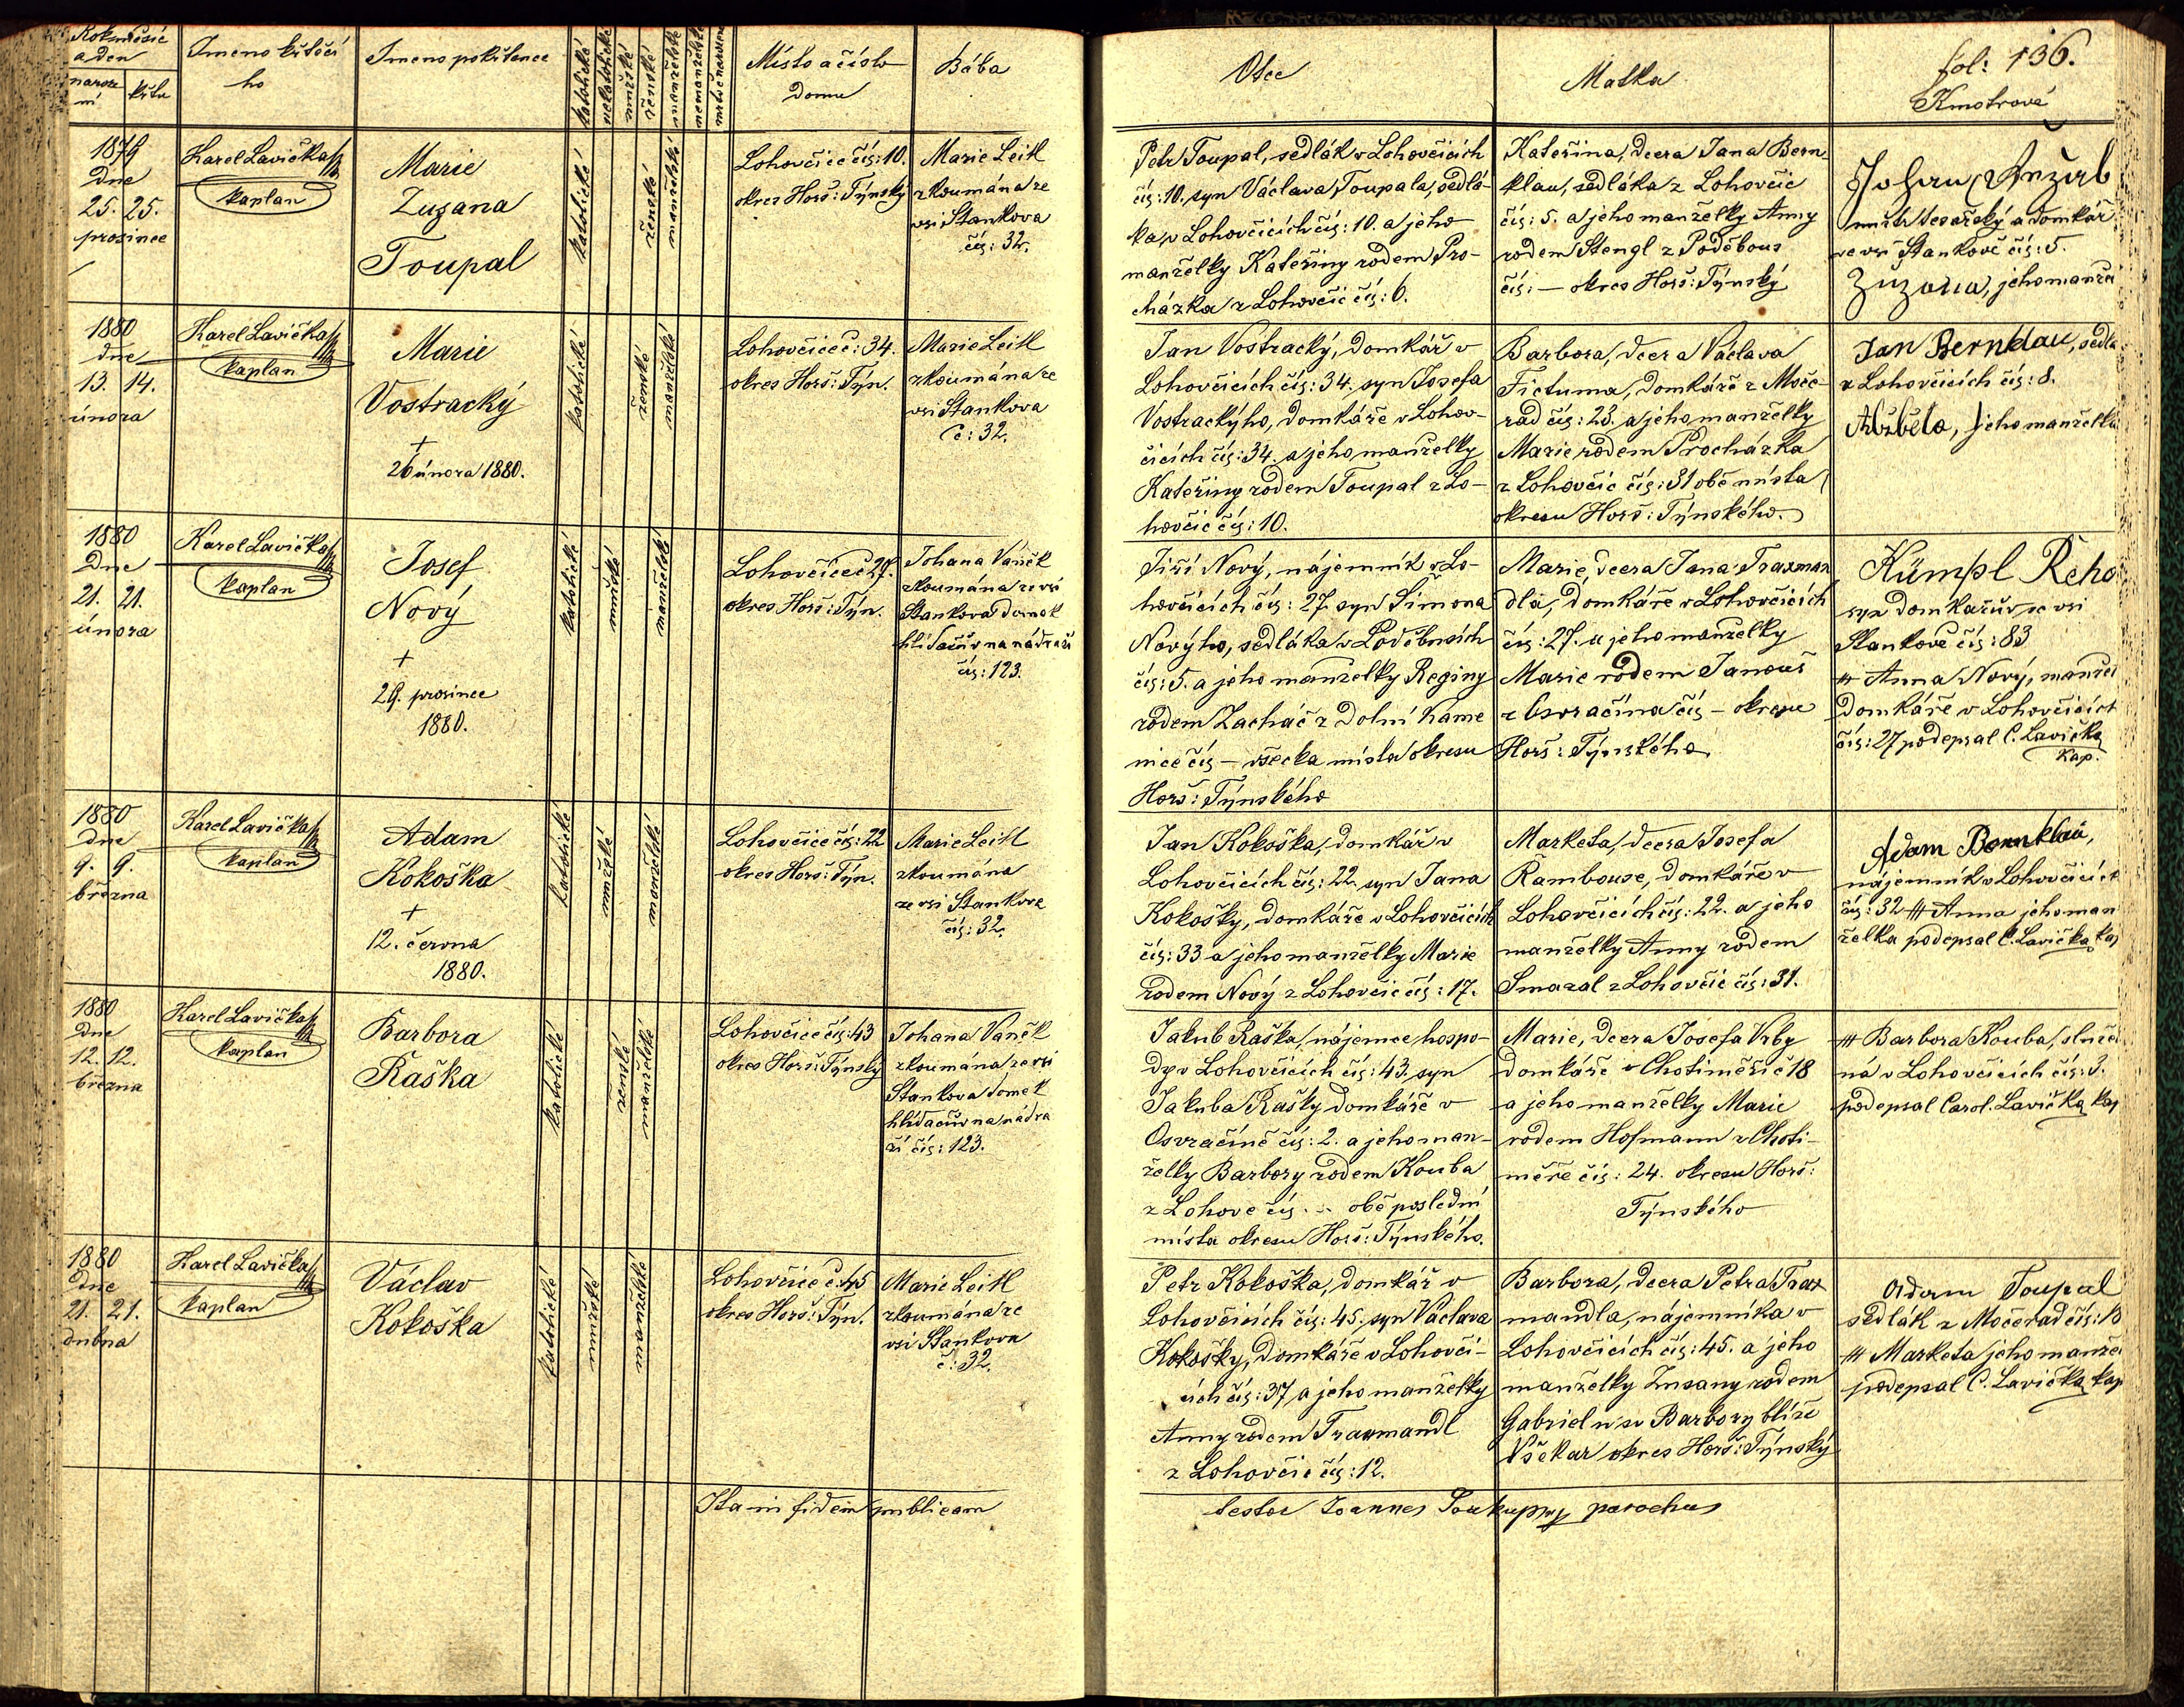 Rok měsíc
a den
naroze
ní
křtu
Jmeno křtícího
Jmeno pokřtence
katolické
nekatolické
mužské
ženské
manželské
nemanželské
mrtvě narozené
Místo a číslo
domu
Bába
Otec
Matka
fol: 136.
Kmotrové
1879
dne
25. 25.
prosince
Karel Lavička
kaplan
Marie
Zuzana
Toupal
katolické
ženské
manželské
Lohovčice čís: 10.
okres Horš: Týnský
Marie Leitl
zkoumána ze
vsi Stankova
čís: 32.
Petr Toupal, sedlák v Lohovčicích
čís: 10. syn Václava Toupala, sedlá-
ka v Lohovčicích čís: 10. a jeho
manželky Kateřiny rodem Pro-
cházka z Lohovčic čís: 6.
Kateřina, dcera Jana Bern-
klau, sedláka z Lohovčic
čís: 5. a jeho manželky Anny
rodem Stengl z Poděbous
čís: — okres Horš: Týnský
Johan
mistr tesařský a domkář
ve vsi Stankově čís: 5.
Zuzana, jeho manže
1880
dne
13. 14.
února
Karel Lavička
kaplan
Marie
Vostracký
+
26 února 1880.
katolické
ženské
manželské
Lohovčice č: 34.
okres Horš: Týn.
Marie Leitl
zkoumána ze
vsi Stankova
č: 32.
Jan Vostracký, domkář v
Lohovčicích čís: 34. syn Josefa
Vostrackýho, domkáře v Lohov-
čicích čís: 34. a jeho manželky
Kateřiny rodem Toupal z Lo-
hovčic čís: 10.
Barbora, dcera Václava
Fictuma, domkáře z Moče-
rad čís: 23. a jeho manželky
Marie rodem Procházka
z Lohovčic čís: 31 obě místa
okresu Horš: Týnského.
Jan Bernklau, sedlá
v Lohovčicích čís: 8.
Alžběta, jeho manželka
1880
dne
21. 21.
února
Karel Lavička
kaplan
Josef
Nový
+
29. prosince
1880.
katolické
mužské
manželské
Lohovčice č 27.
okres Horš: Týn.
Johana Vaněk
zkoumána ze vsi
Stankova domek
hlídačův na nádraží
čís: 123.
Jiří Nový, nájemník v Lo-
hovčicích čís: 27. syn Šimona
Novýho, sedláka v Poděbusích
čís: 5. a jeho manželky Reginy
rodem Zacháč z Dolní Kame
nice čís — všecka místa okresu
Horš: Týnského
Marie, dcera Jana Traxman
dla, domkáře v Lohovčicích
čís: 27. a jeho manželky
Marie rodem Janouš
z Osvračína čís — okresu
Horš: Týnského
Kümpl Řeho
syn domkařův ze vsi
Stankově čís: 83
+++ Anna Nový, manžel
domkáře v Lohovčicích
čís: 27 podepsal C. Lavička
kap.
1880
dne
9. 9.
března
Karel Lavička
kaplan
Adam
Kokoška
+
12. června
1880.
katolické
mužské
manželské
Lohovčice čís: 22
okres Horš: Týn.
Marie Leitl
zkoumána
ze vsi Stankova
čís: 32.
Jan Kokoška, domkář v
Lohovčicích čís: 22. syn Jana
Kokošky, domkáře v Lohovčicích
čís: 33 a jeho manželky Marie
rodem Nový z Lohovčic čís: 17.
Marketa, dcera Josefa
Rambouse, domkáře v
Lohovčicích čís: 22. a jeho
manželky Anny rodem
Smazal z Lohovčic čís: 31.
Adam Bernklau,
nájemník v Lohovčicích
čís: 32 +++ Anna jeho man
želka podepsal C. Lavička kap
1880
dne
12. 12.
března
Karel Lavička
kaplan
Barbora
Raška
katolické
ženské
manželské
Lohovčice čís: 43
okres Horš: Týnský
Johana Vaněk
zkoumána ze vsi
Stankova domek
hlídačův na nádra
ží čís: 123.
Jakub Raška, nájemce hospo-
dy v Lohovčicích čís: 43. syn
Jakuba Rašky domkáře v
Osvračíně čís: 2. a jeho man-
želky Barbory rodem Kouba
z Lohovc čís. — obě poslední
místa okresu Horš: Týnského.
Marie, dcera Josefa Vrby
domkáře v Chotiměři č 18
a jeho manželky Marie
rodem Hofmann z Choti-
měře čís: 24. okresu Horš:
Týnského
+++ Barbora Kouba, služeb
ná v Lohovčicích čís: 3.
podepsal Carol. Lavička kap
1880
dne
21. 21.
dubna
Karel Lavička
kaplan
Václav
Kokoška
katolické
mužské
manželské
Lohovčice č: 45
okres Horš: Týn.
Marie Leitl
zkoumána ze
vsi Stankova
č: 32.
Petr Kokoška, domkář v
Lohovčicích čís: 45. syn Václava
Kokošky, domkáře v Lohovči-
cích čís: 37 a jeho manželky
Anny rodem Traxmandl
z Lohovčic čís: 12.
Barbora, dcera Petra Trax
mandla, nájemníka v
Lohovčicích čís: 45. a jeho
manželky Zusany rodem
Gabriel u sv Barbory blíže
Všekar okres Horš: Týnský
Adam Toupal
sedlák z Močerad čís: 13
+++ Marketa jeho manžel
podepsal C. Lavička kap
Ita in fidem publicam
testor Joannes Soukupmp parochus